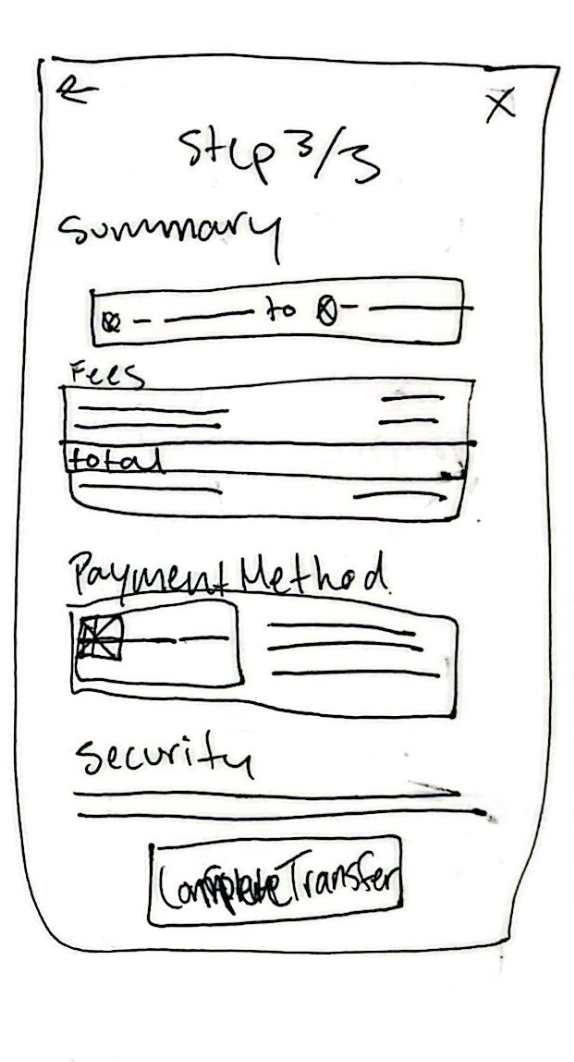 Step 3/3
Summary
to
Fees
total
Payment Method
Security
Complete Transfer